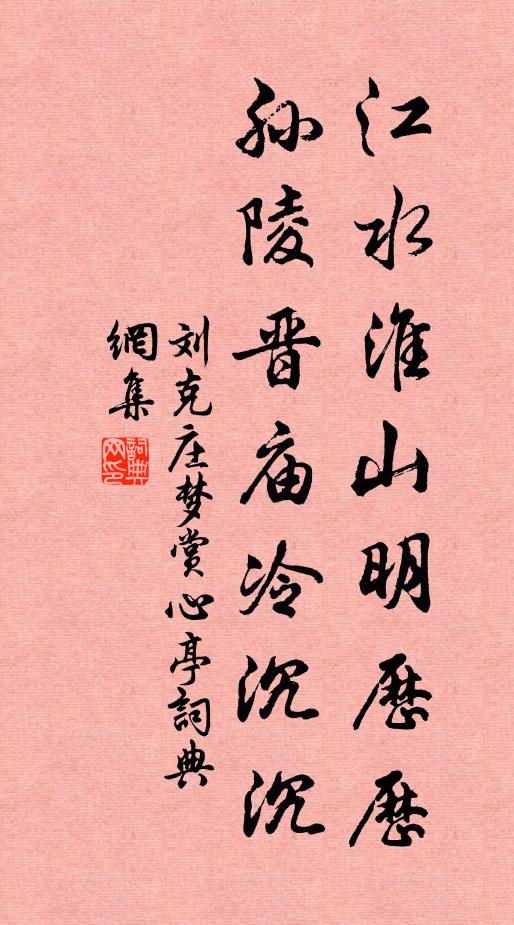 江水淮山明歷歷
孙陵晋庙冷沉沉
刘克庄梦赏心亭詞典
網集
詞典網印